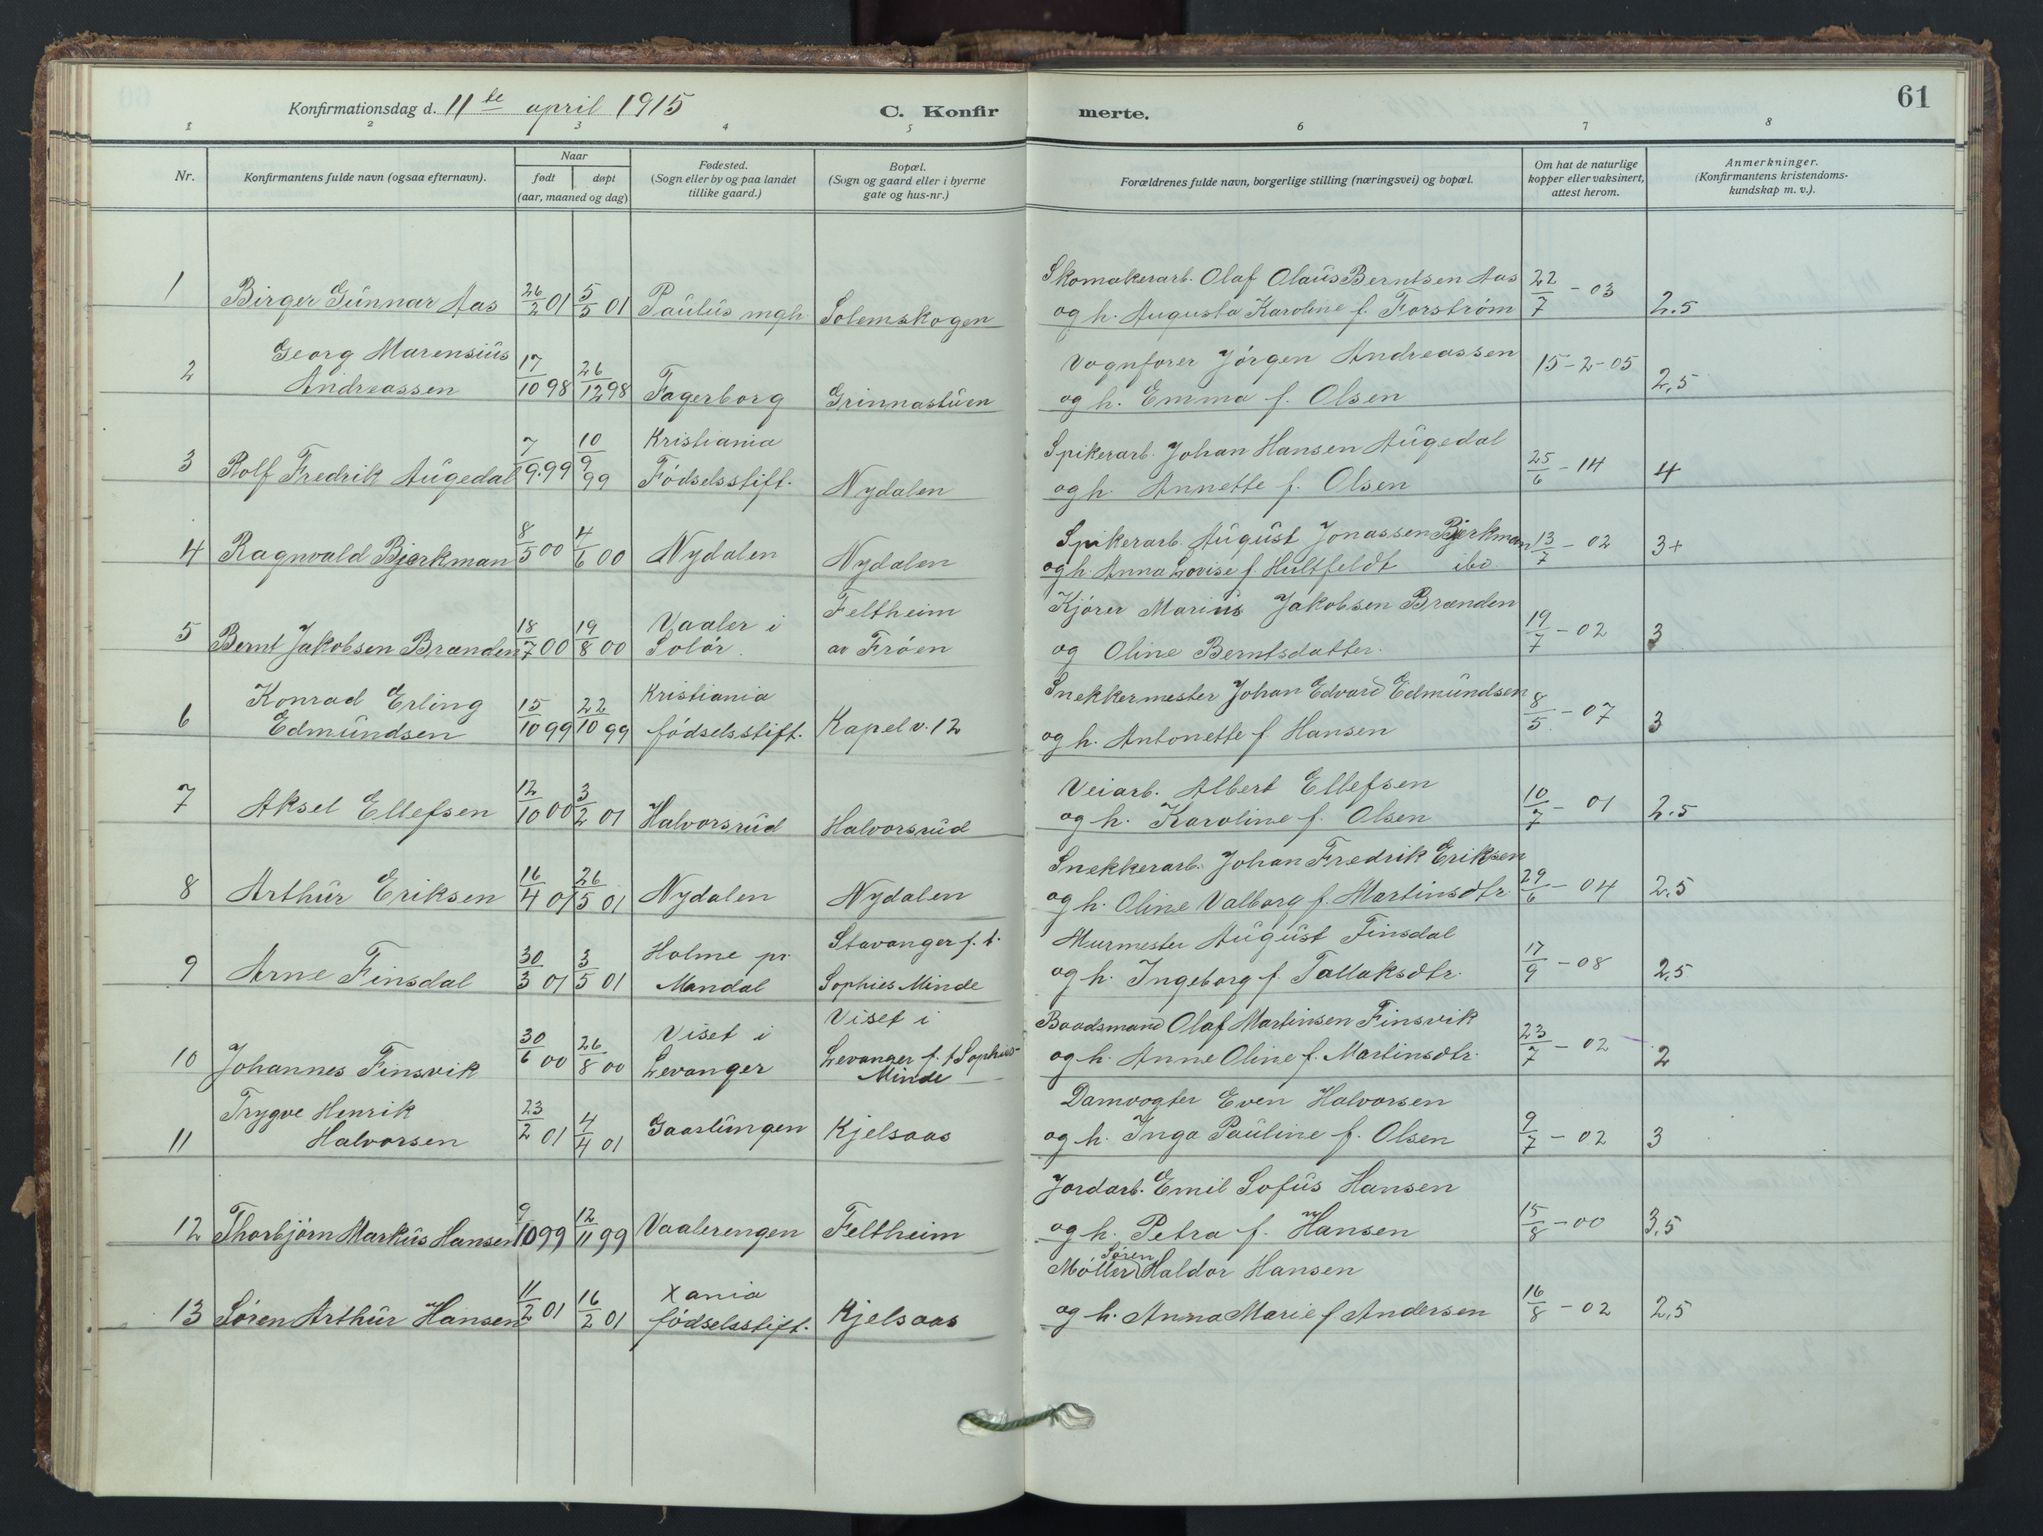 Konfirmationsdag d. 11te april 1915
C. Konfirmerte.
61
1 2 3 4 5 6 7 8
Nr.
Konfirmantens fulde navn (ogsaa efternavn).
Naar
født døpt
(aar, maaned og dag)
Fødested.
(Sogn eller by og paa landet
tillike gaard.)
Bopæl.
(Sogn og gaard eller i byerne
gate og hus-nr.)
Forældrenes fulde navn, borgerlige stilling (næringsvei) og bopæl.
Om hat de naturlige
kopper eller vaksinert,
attest herom.
Anmerkninger.
(Konfirmantens kristendoms-
kundskap m. v.).
Skomakerarb. Olaf Olaüs Berntsen Aas
1 Birger Günnar Aas 26/2 01 5/5 01 Paulüs mgh. Solemskogen og h. Augusta Karoline f. Forstrøm 22/7 - 03 2.5
Georg Marensiüs Vognfører Jørgen Andreassen
2 Andreassen 17/10 98 26/12 98 Fagerborg Grinnastüen og h. Emma f. Olsen 15-2-05 2,5
Kristiania Spikerarb. Johan Hansen Aügedal
3 Rolf Fredrik Aügedal 7/9.99 10/9 99 Fødselsstift. Nydalen og h. Annette f. Olsen 25/6 - 14 4
Spikerarb. Aügüst Jonassen Bjerkman
4 Ragnvald Bjerkman 8/5 00 4/6 00 Nydalen Nydalen og h. Anna Lovise f. Hultfeldt ibd. 13/7 - 02 3+
Vaaler i Feltheim Kjører Mariüs Jakobsen Brænden
5 Bernt Jakobsen Brænden 18/7 00 19/8 00 Solør. av Frøen og Oline Berntsdatter. 19/7 - 02 3
Konrad Erling Kristiania Snekkermester Johan Edvard Edmündsen
6 Edmündsen 15/10 99 22/10 99 fødselsstift. Kapelv. 12 og h. Antonette f. Hansen 8/5 - 07 3
Veiarb. Albert Ellefsen
7 Aksel Ellefsen 12/10 00 3/2 01 Halvorsrüd Halvorsrüd og h. Karoline f. Olsen 10/7 - 01 2.5
Snekkerarb. Johan Fredrik Eriksen
8 Arthür Eriksen 16/4 01 26/5 01 Nydalen Nydalen og h. Oline Valborg f. Martinsdtr. 29/6 - 04 2.5
Holme pr. Stavanger f. t. Murmester Aügüst Finsdal
9 Arne Finsdal 30/3 01 3/5 01 Mandal Sophies Minde og h. Ingeborg f. Tallaksdtr. 17/9 - 08 2,5
Viset i Viset i Baadsmand Olaf Martinsen Finsvik
10 Johannes Finsvik 30/6 00 26/8 00 Levanger Levanger f. t Sophies- og h. Anne Oline f. Martinsdtr. 23/7 - 02 2
Minde
Trygve Henrik Damvogter Even Halvorsen
11 Halvorsen 23/2 01 4/4 01 Gaarlüngen Kjelsaas og h. Inga Pauline f. Olsen 9/7 - 02 3
Jordarb. Emil Sofüs Hansen
12 Thorbjørn Markus Hansen 9/10 99 12/11 99 Vaalerengen Feltheim og h. Petra f. Hansen 15/8 - 00 3,5
Xania Møller Søren Haldor Hansen
13 Søren Arthür Hansen 11/2 01 16/2 01 fødselsstift. Kjelsaas og h. Anna Marie f Andersen 16/8 - 02 2,5